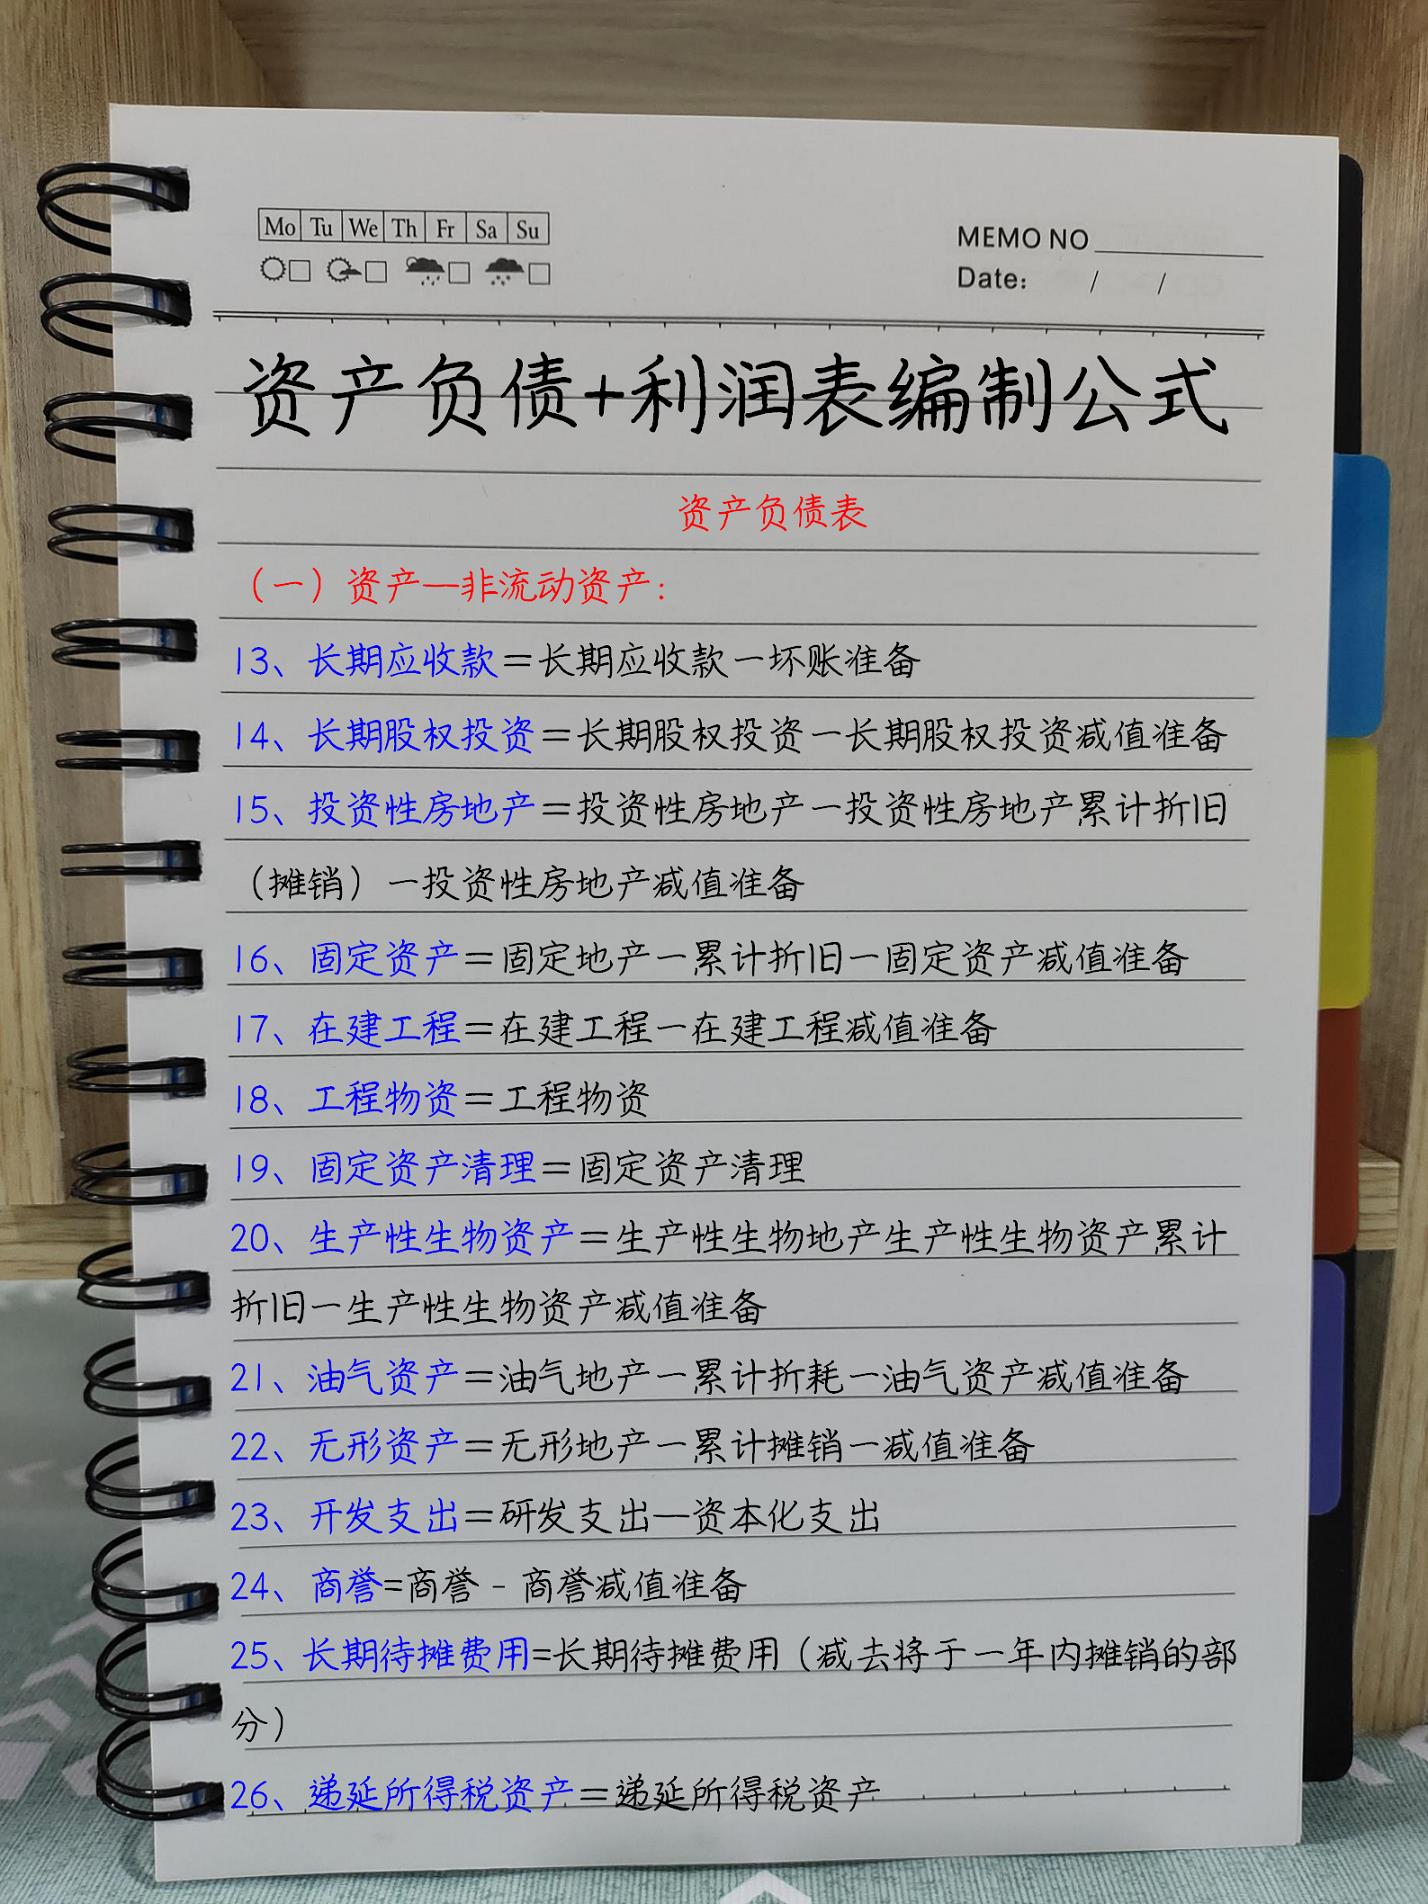 Mo Tu We Th Fr Sa Su
MEMO NO
Date: / /
资产负债+利润表编制公式
资产负债表
（一）资产—非流动资产：
13、长期应收款＝长期应收款－坏账准备
14、长期股权投资＝长期股权投资－长期股权投资减值准备
15、投资性房地产＝投资性房地产－投资性房地产累计折旧
（摊销）－投资性房地产减值准备
16、固定资产＝固定地产－累计折旧－固定资产减值准备
17、在建工程＝在建工程－在建工程减值准备
18、工程物资＝工程物资
19、固定资产清理＝固定资产清理
20、生产性生物资产＝生产性生物地产生产性生物资产累计
折旧－生产性生物资产减值准备
21、油气资产＝油气地产－累计折耗－油气资产减值准备
22、无形资产＝无形地产－累计摊销－减值准备
23、开发支出＝研发支出—资本化支出
24、商誉=商誉 - 商誉减值准备
25、长期待摊费用=长期待摊费用（减去将于一年内摊销的部
分）
26、递延所得税资产＝递延所得税资产